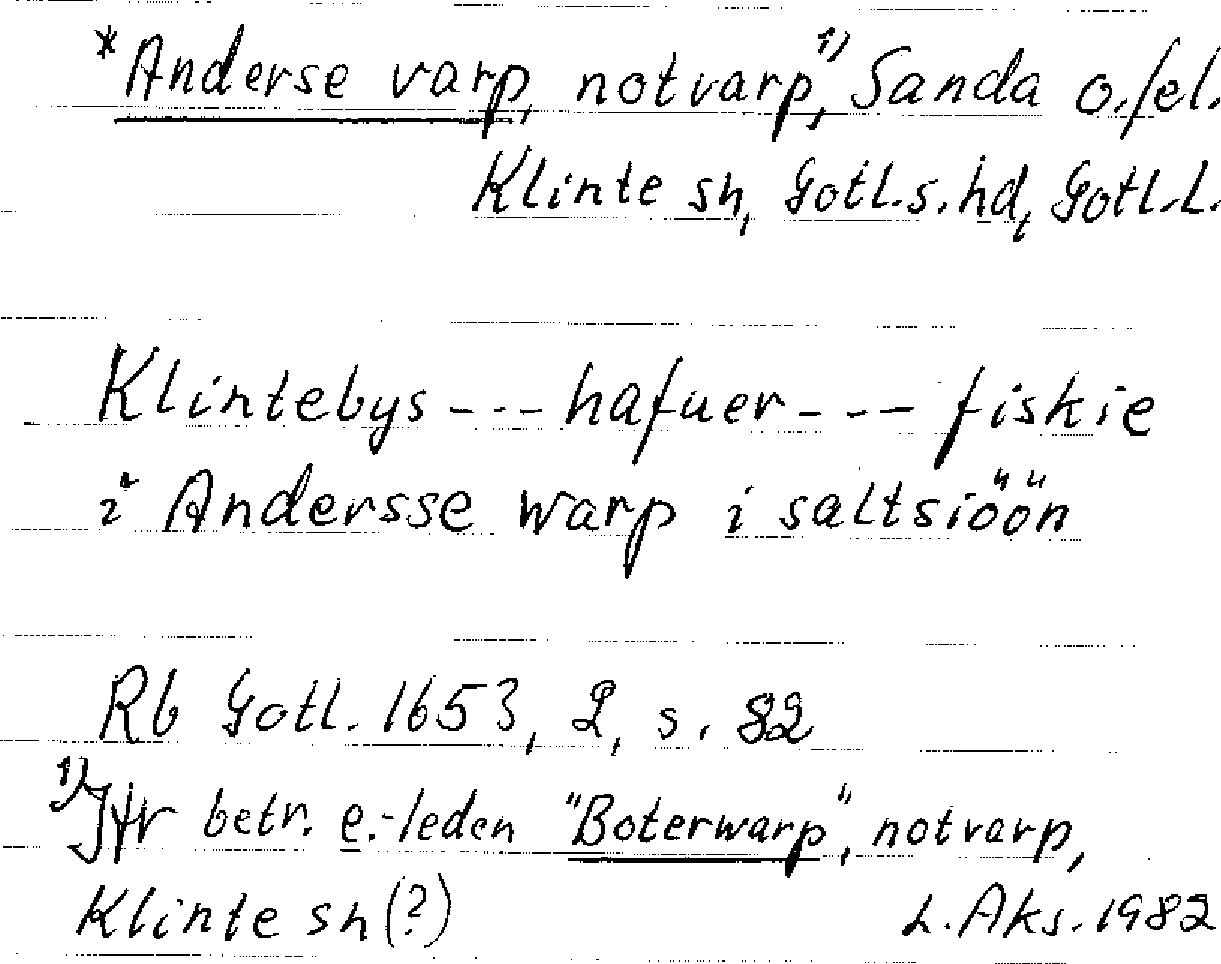 *Anderse varp, notvarp,¹⁾ Sanda o./el.
Klinte sn, Gotl.s.hd, Gotl.L.
Klintebys --- hafuer --- fiskie
i Andersse warp i saltsiöön
Rb Gotl. 1653, 2, s. 82
¹⁾Jfr betr. e.-leden "Boterwarp", notvarp,
Klinte sn (?) L. Aks. 1982